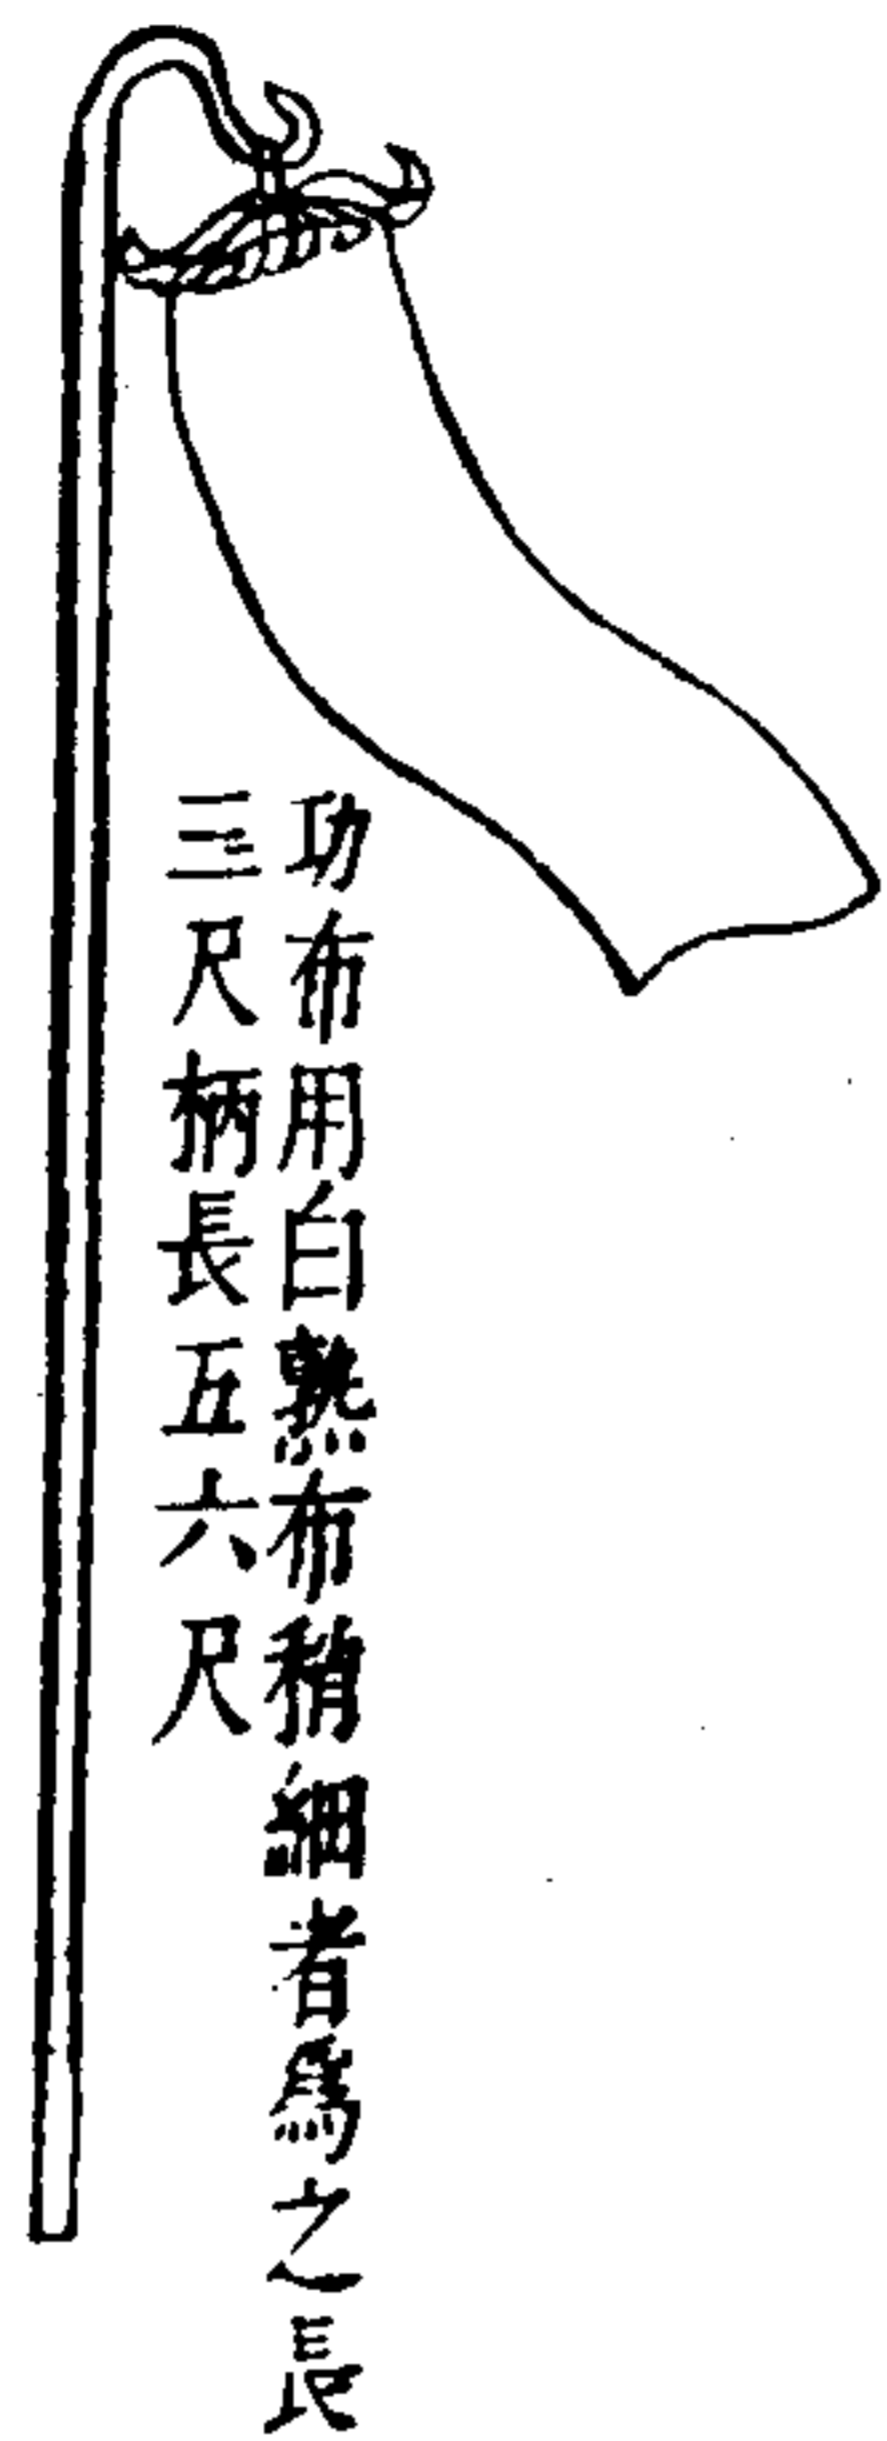 功布用白熟布稍細者爲之長
三尺柄長五六尺